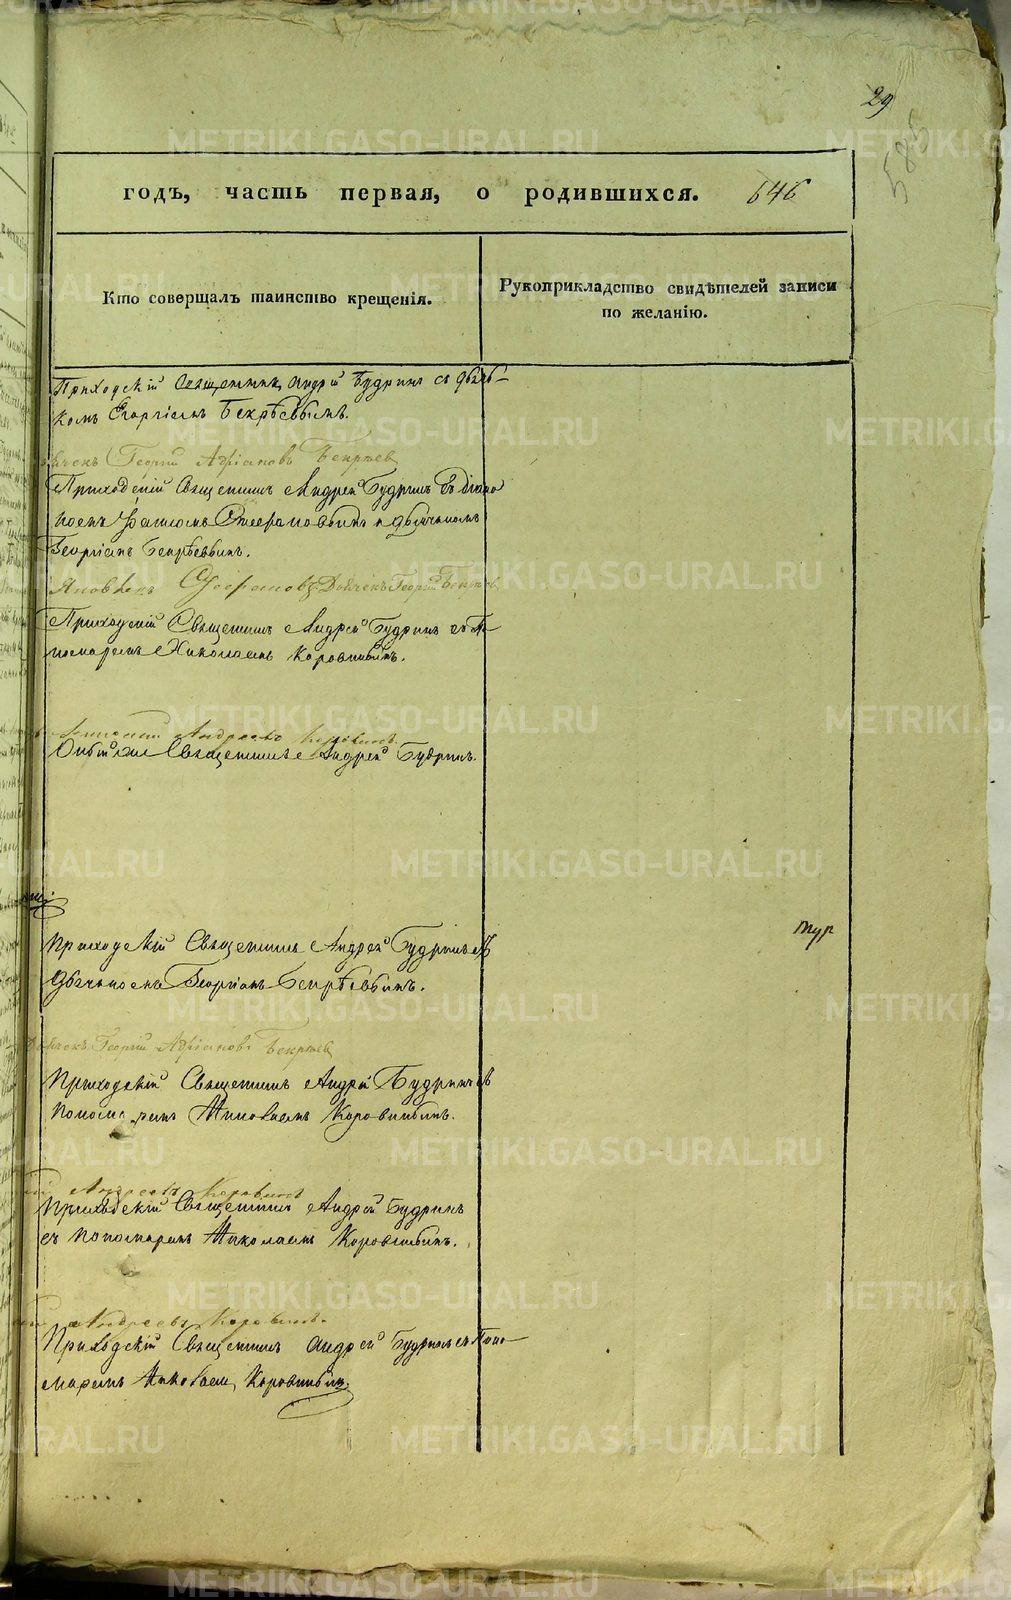 29
585
годъ, часть первая, о родившихся. 646
Кто совершалъ таинство крещенія.
Рукоприкладство свидѣтелей записи
по желанію.
Приходскій Священникъ Андрей Будринъ съ дьяч-
комъ Георгіемъ Бекрѣевымъ.
Георгій Адріановъ Бекряев
Приходскій Священникъ Андрей Будринъ съ діако
номъ Стефановымъ и дьячкомъ
Георгіемъ Бекрѣевымъ.
Яковъ Стефановъ Дьячекъ Георгій Бекряев
Приходскій Священникъ Андрей Будринъ съ По
номаремъ Николаемъ Коровинымъ.
Андреевъ Коровинъ
Священникъ Андрей Будринъ.
Приходскій Священникъ Андрей Будринъ съ
дьячкомъ Георгіемъ Бекрѣевымъ.
тур
Дьячекъ Георгій Адріановъ Бекряев
Приходскій Священникъ Андрей Будринъ съ
пономаремъ Николаемъ Коровинымъ.
Андреевъ Коровинъ
Приходскій Священникъ Андрей Будринъ
съ пономаремъ Николаемъ Коровинымъ.
Андреевъ Коровинъ.
Приходскій Священникъ Андрей Будринъ съ Поно-
маремъ Николаемъ Коровинымъ.
METRIKI.GASO-URAL.RU